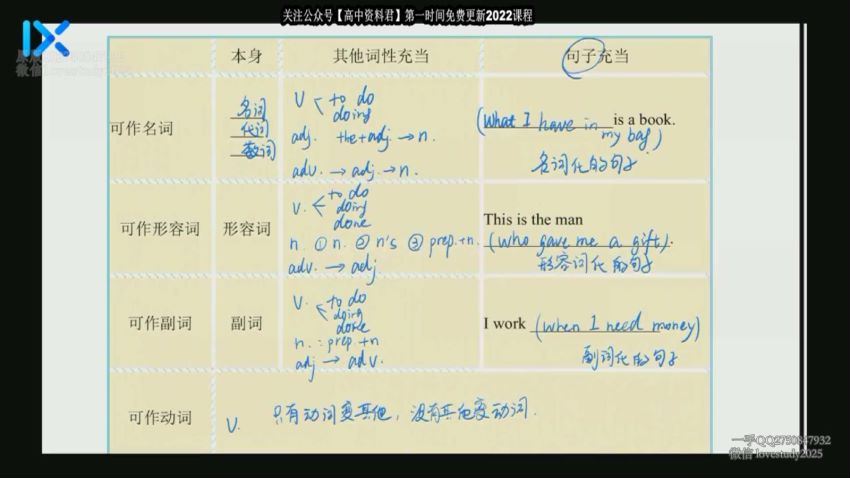 关注公众号【高中资料君】第一时间免费更新2022课程
微信 lovestudy2025
本身 其他词性充当 句子充当
可作名词
名词
代词
数词
V to do
doing
adj. the+adj. → n.
adv. → adj. → n.
(What I have in my bag) is a book.
名词化的句子
可作形容词 形容词
v. to do
doing
done
n. ① n. ② n's ③ prep.+n.
adv. → adj.
This is the man
(who gave me a gift).
形容词化的句子
可作副词 副词
v. to do
doing
done
n. : prep.+n
adj → adv.
I work (when I need money)
副词化的句子
可作动词 V. 只有动词变其他，没有其他变动词.
一手QQ2750847932
微信 lovestudy2025